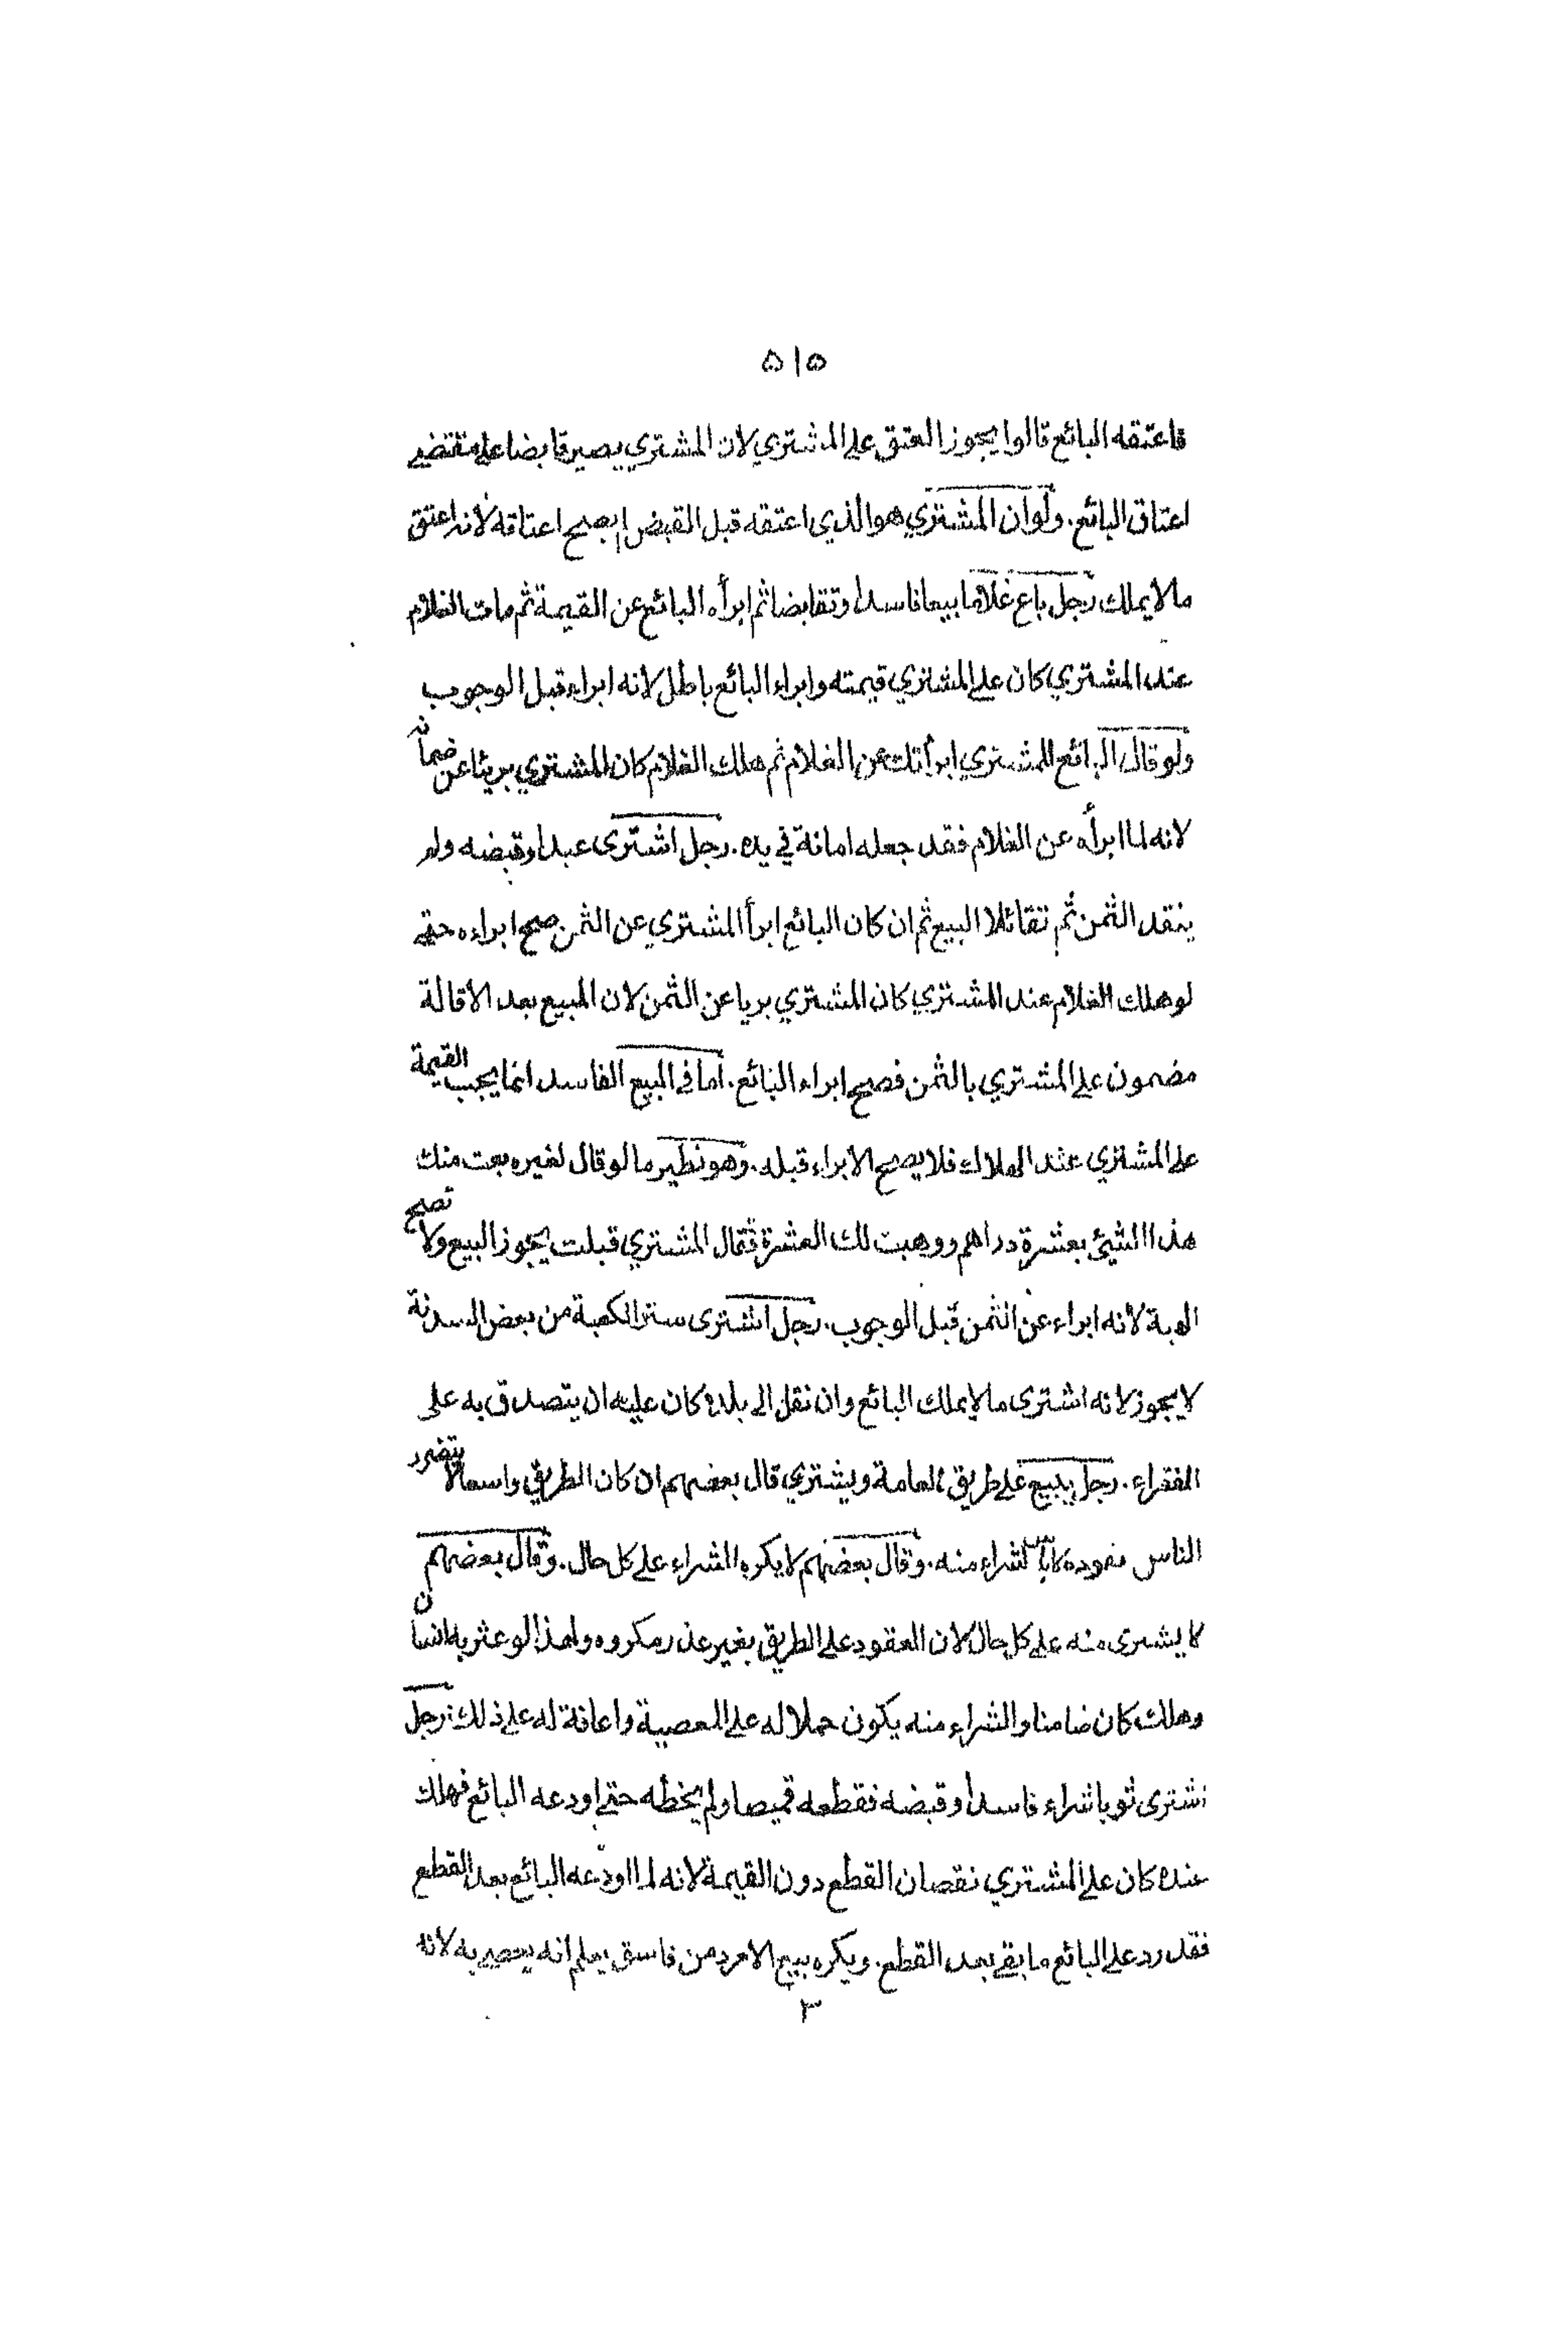 ٥١٥
فاعتقه البائع قالوا يجوز العتق على المشتري لان المشتري يصير قابضا على مقتضى
اعتاق البائع. ولوان المشتري هوالذي اعتقه قبل القبض لم يصح اعتاقه لانه اعتق
ما لايملك رجل باع غلاما بيعا فاسدا وتقابضا ثم ابرأه البائع عن القيمة ثم مات الغلام
عند المشتري كان على المشتري قيمته وابراء البائع باطل لانه ابراء قبل الوجوب
ولو قال البائع للمشتري ابرأتك عن الغلام ثم هلك الغلام كان المشتري بريئا عن ضمانه
لانه لما ابرأه عن الغلام فقد جعله امانة في يده. رجل اشترى عبدا وقبضه ولم
ينقد الثمن ثم تقائلا البيع ثم ان كان البائع ابرأ المشتري عن الثمن صح ابراءه حتى
لو هلك الغلام عند المشتري كان المشتري بريا عن الثمن لان المبيع بعد الاقالة
مضمون على المشتري بالثمن فصح ابراء البائع. اما في البيع الفاسد انما يجب القيمة
على المشتري عند الهلاك فلا يصح الابراء قبله. وهو نظير ما لو قال لغيره بعت منك
هذا الشيئ بعشرة دراهم ووهبت لك العشرة فقال المشتري قبلت يجوز البيع ولا تصح
الهبة لانه ابراء عن الثمن قبل الوجوب. رجل اشترى ستر الكعبة من بعض السدنة
لا يجوز لانه اشترى ما لايملك البائع وان نقل الى بلده كان عليه ان يتصدق به على
الفقراء. رجل يبيع على طريق العامة ويشتري قال بعضهم ان كان الطريق واسعا لا يتضرر
الناس بقعوده لا بأس بالشراء منه. وقال بعضهم لا يكره الشراء على كل حال. وقال بعضهم
لا يشترى منه على كل حال لان العقود على الطريق بغير عذر مكروه ولهذا لو عثر به انسان
وهلك كان ضامنا والشراء منه يكون حملا له على المعصية واعانة له على ذلك. رجل
اشترى ثوبا شراء فاسدا وقبضه فقطعه قميصا ولم يخطه حتى اودعه البائع فهلك
عنده كان على المشتري نقصان القطع دون القيمة لانه لما اودعه البائع بعد القطع
فقد رد على البائع ما بقي بعد القطع. ويكره بيع الامرد من فاسق يعلم انه يعصي به لانه
٣